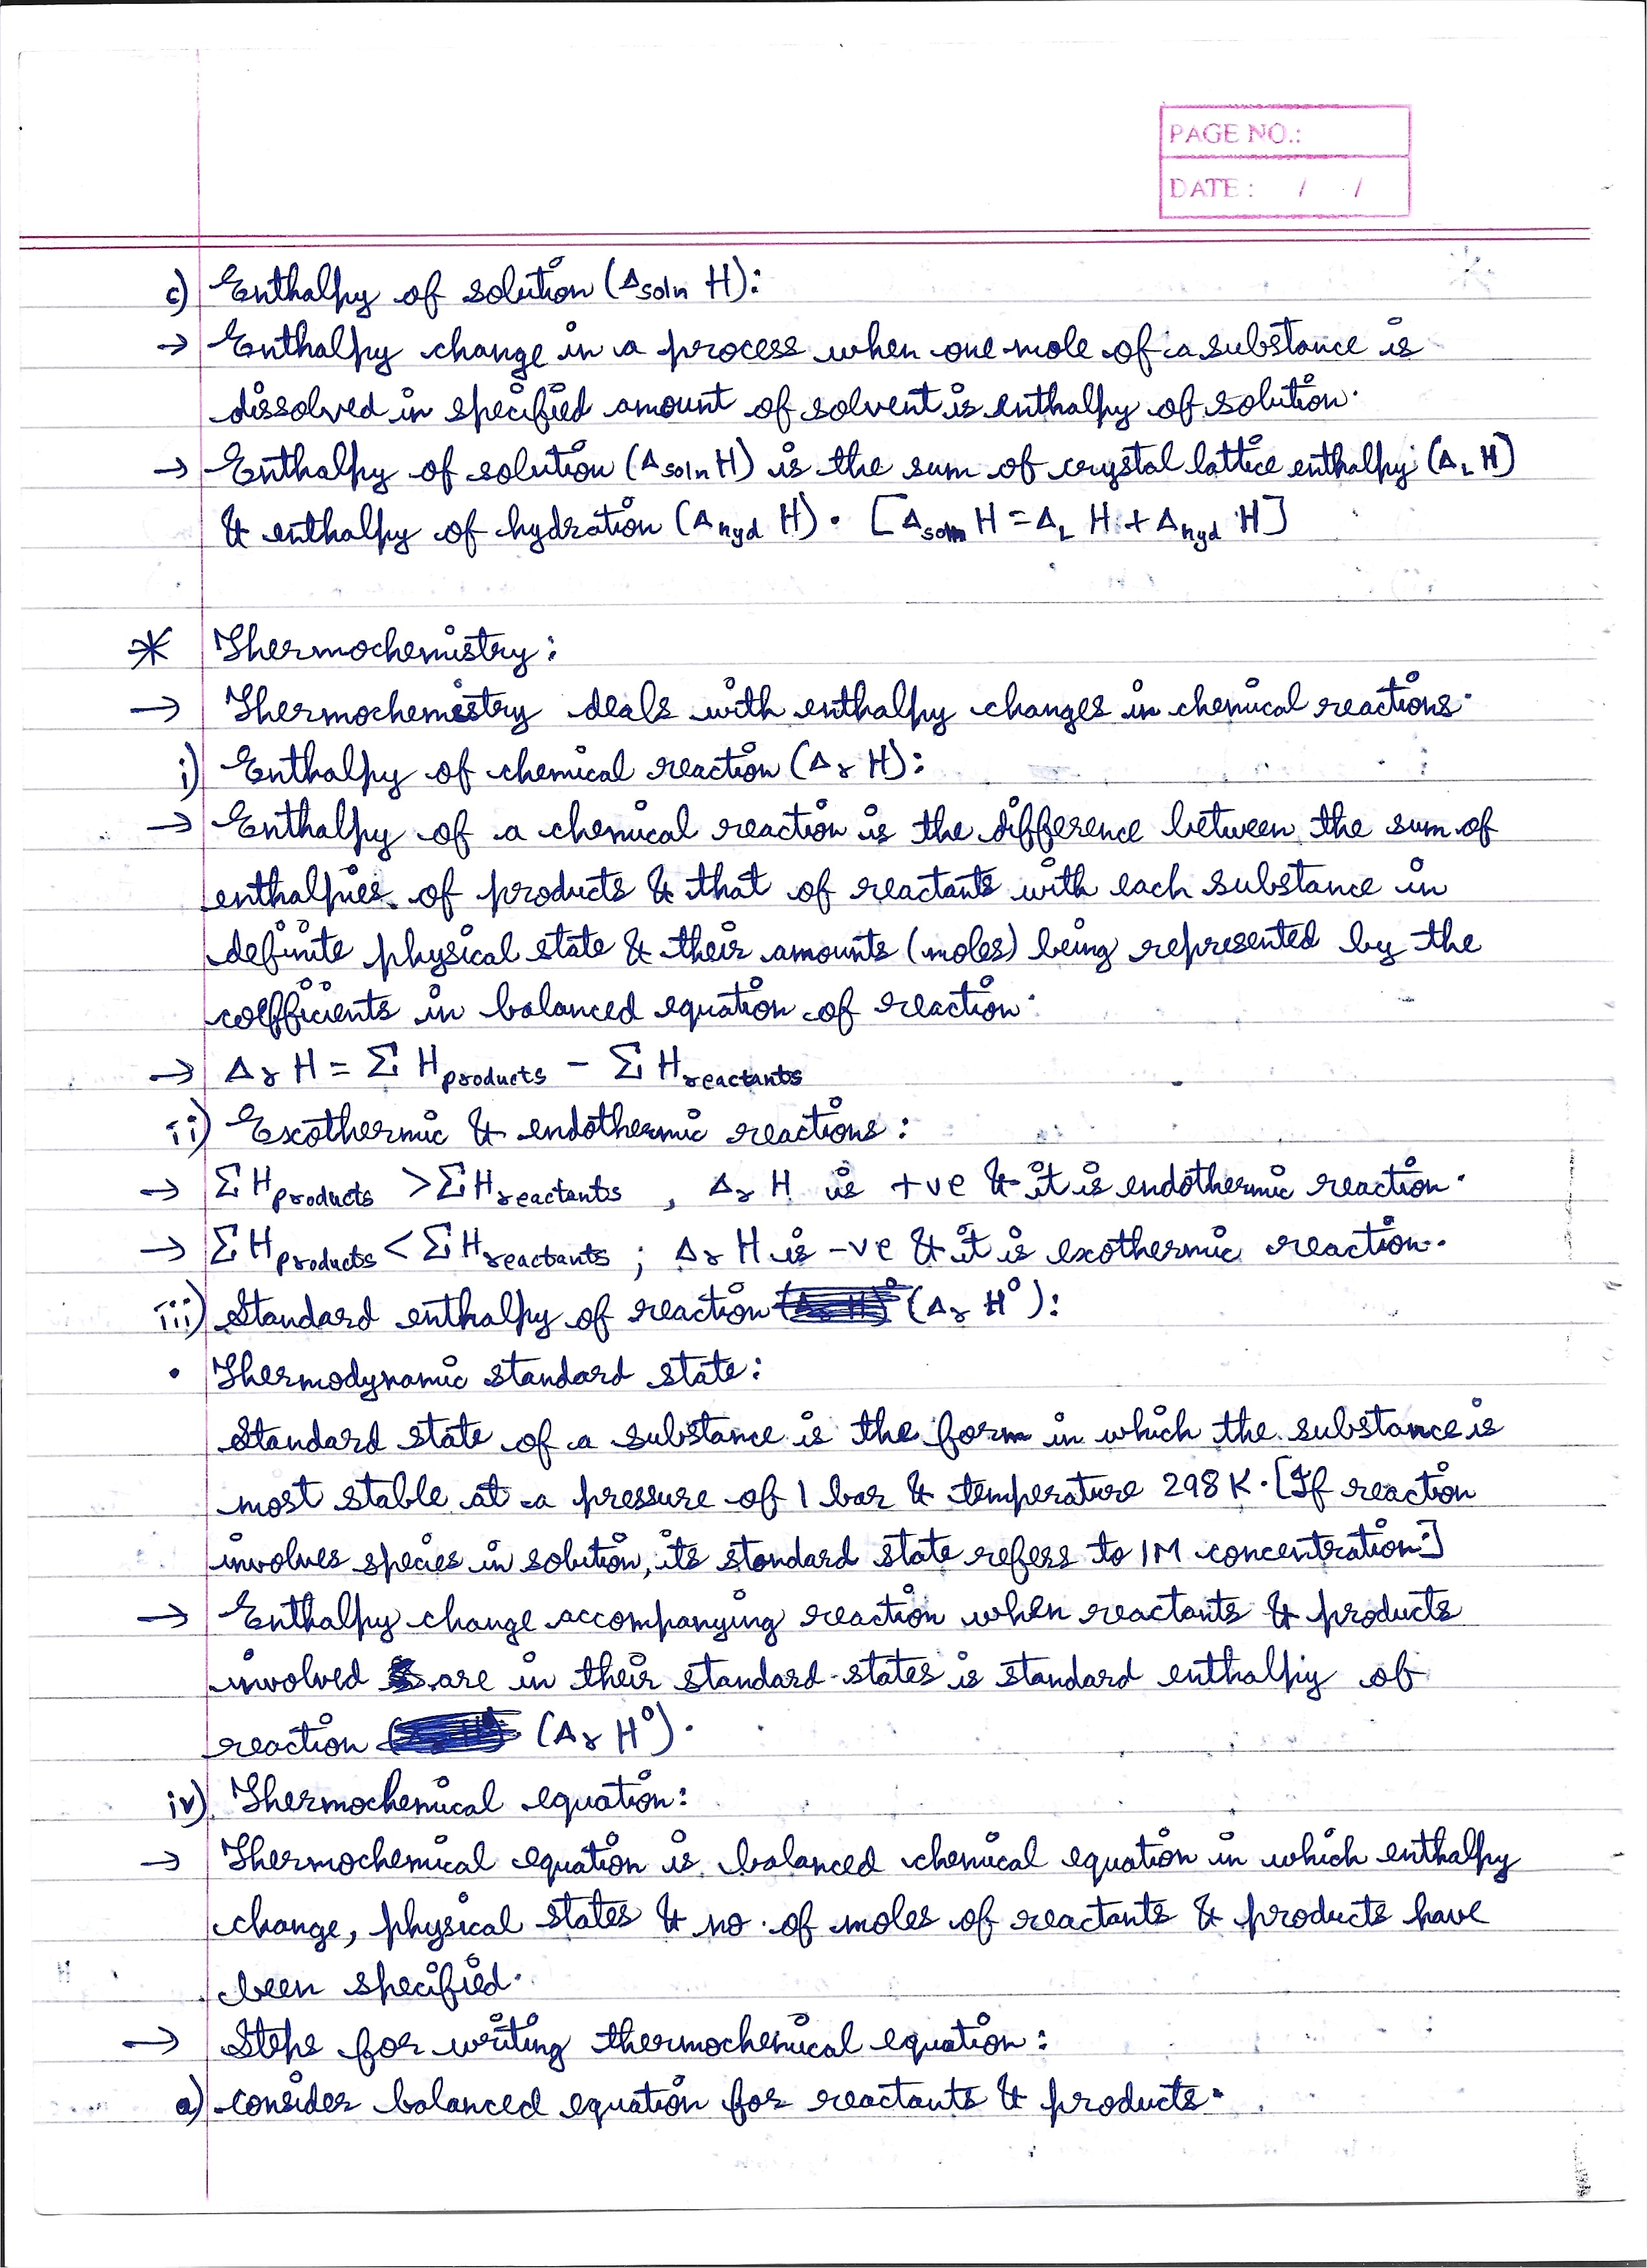 PAGE NO.:
DATE : / /
c) Enthalpy of solution (Δsoln H):
→ Enthalpy change in a process when one mole of a substance is
dissolved in specified amount of solvent is enthalpy of solution.
→ Enthalpy of solution (Δsoln H) is the sum of crystal lattice enthalpy (ΔL H)
& enthalpy of hydration (Δhyd H). [Δsoln H = ΔL H + Δhyd H]
* Thermochemistry:
→ Thermochemistry deals with enthalpy changes in chemical reactions.
i) Enthalpy of chemical reaction (Δr H):
→ Enthalpy of a chemical reaction is the difference between the sum of
enthalpies of products & that of reactants with each substance in
definite physical state & their amounts (moles) being represented by the
coefficients in balanced equation of reaction.
→ Δr H = Σ Hproducts – Σ Hreactants
ii) Exothermic & endothermic reactions:
→ ΣHproducts > ΣHreactants , Δr H is +ve & it is endothermic reaction.
→ ΣHproducts < ΣHreactants ; Δr H is -ve & it is exothermic reaction.
iii) Standard enthalpy of reaction (Δr H°):
• Thermodynamic standard state:
Standard state of a substance is the form in which the substance is
most stable at a pressure of 1 bar & temperature 298 K. [If reaction
involves species in solution, its standard state refers to 1M concentration.]
→ Enthalpy change accompanying reaction when reactants & products
involved are in their standard states is standard enthalpy of
reaction (Δr H°).
iv) Thermochemical equation:
→ Thermochemical equation is balanced chemical equation in which enthalpy
change, physical states & no. of moles of reactants & products have
been specified.
→ Steps for writing thermochemical equation:
a) consider balanced equation for reactants & products.